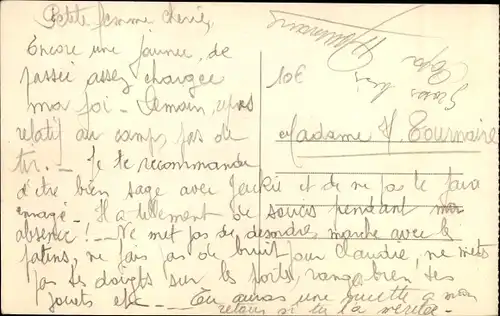 Petite femme cherie,
Encore une journee, de
passée assez chargee
ma foi - Demain, repos
relatif au camp, pas de
tir. - Je te recommande
d'être bien sage avec Jackie et de ne pas le faire
enragé - Il a tellement de soucis pendant mon
absence! - Ne met pas de désordre, marche avec les
patins, ne fais pas de bruit pour Claudie, ne mets
pas tes doigts sur les portes, range bien tes
jouets etc - Tu auras une sucette a mon
retour si tu la mérites -
Gros bis
Papa
10€
Madame H. Tournaire